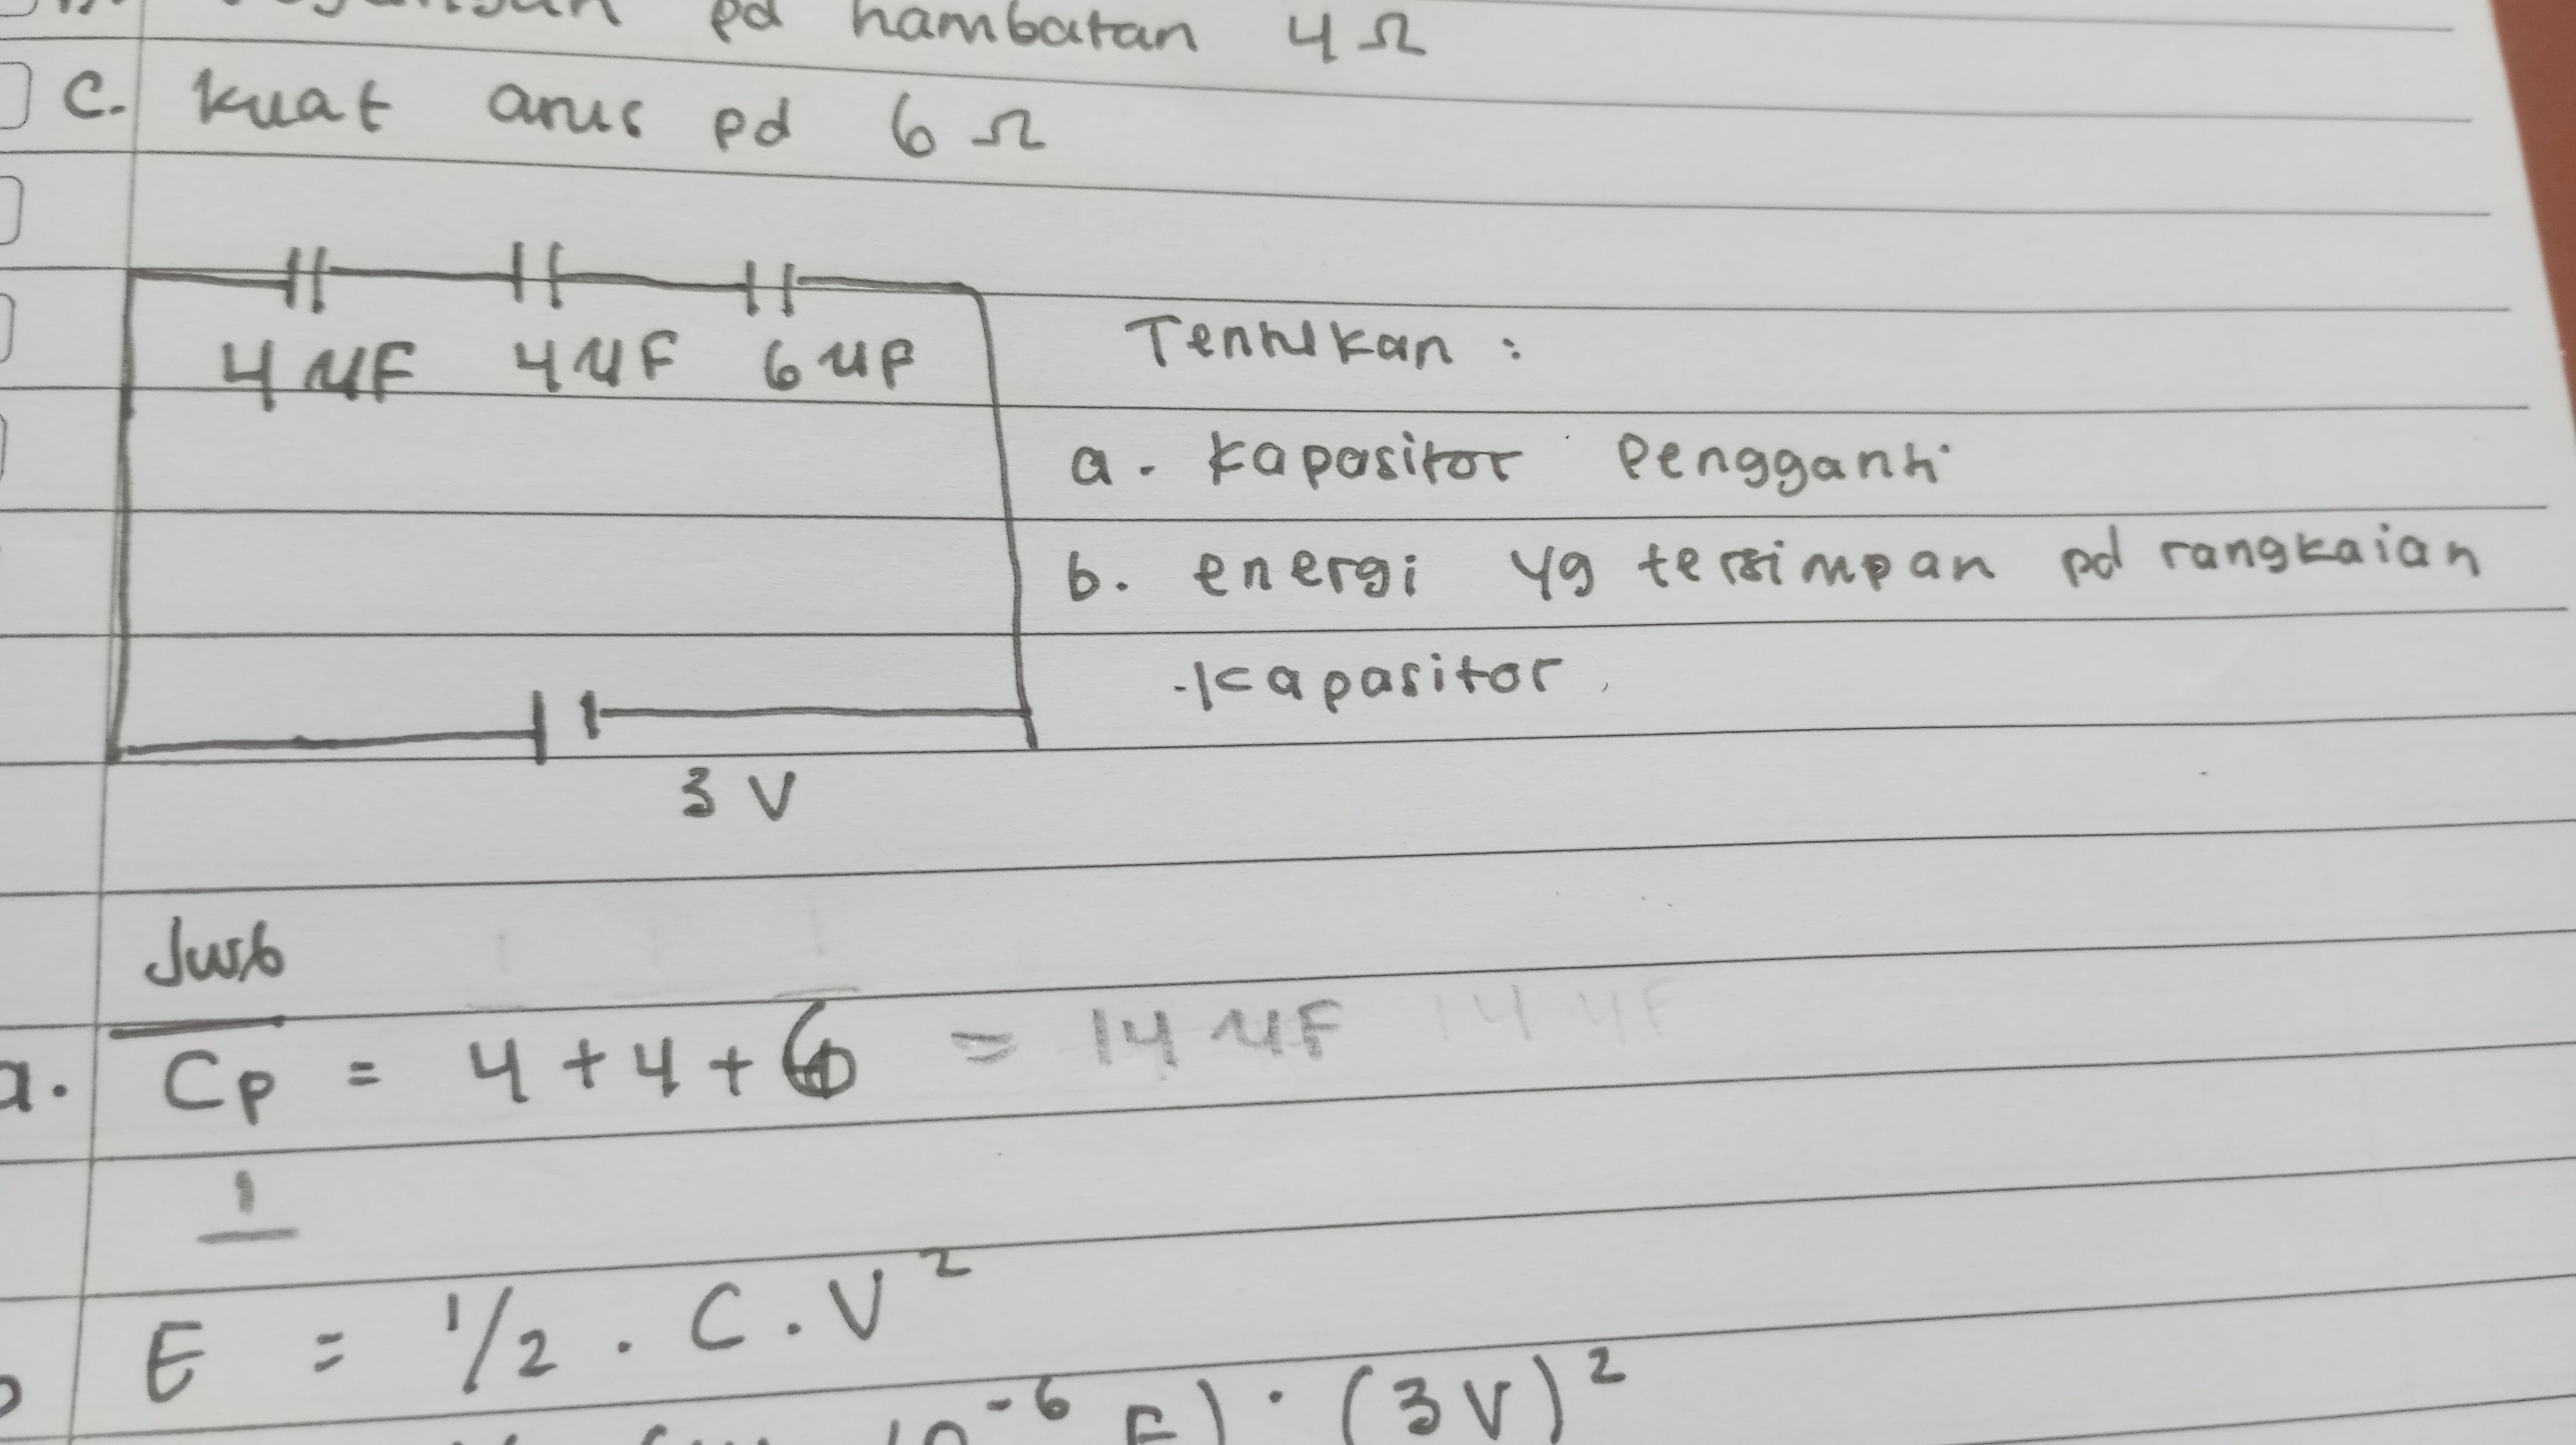 pd hambatan 4 Ω
c. kuat arus pd 6 Ω
4 μF 4 μF 6 μF
Tentukan :
a. kapasitor pengganti
b. energi yg tersimpan pd rangkaian
kapasitor
3 V
Jwb
a. Cp = 4 + 4 + 6 = 14 μF 14 μF
1
E = 1/2 . C . V²
10⁻⁶ F) . (3 V)²